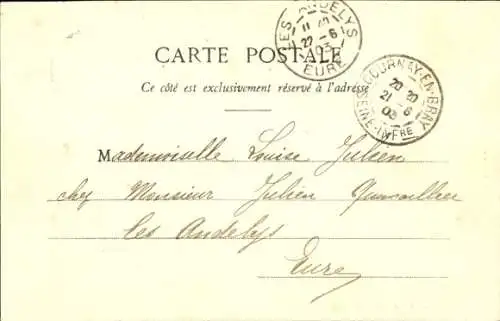 LES ANDELYS
22 - 6
03
EURE
CARTE POSTALE
Ce côté est exclusivement réservé à l'adresse
GOURNAY-EN-BRAY
20 30
21 - 6
03
SEINE-INFRE
Mademoiselle Louise Julien
chez Monsieur Julien Quincaillier
les Andelys
Eure